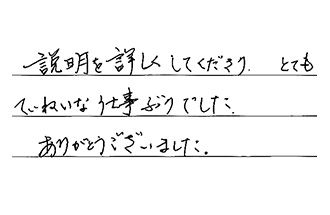 説明を詳しくしてくださり. とても
ていねいな仕事ぶりでした.
ありがとうございました。